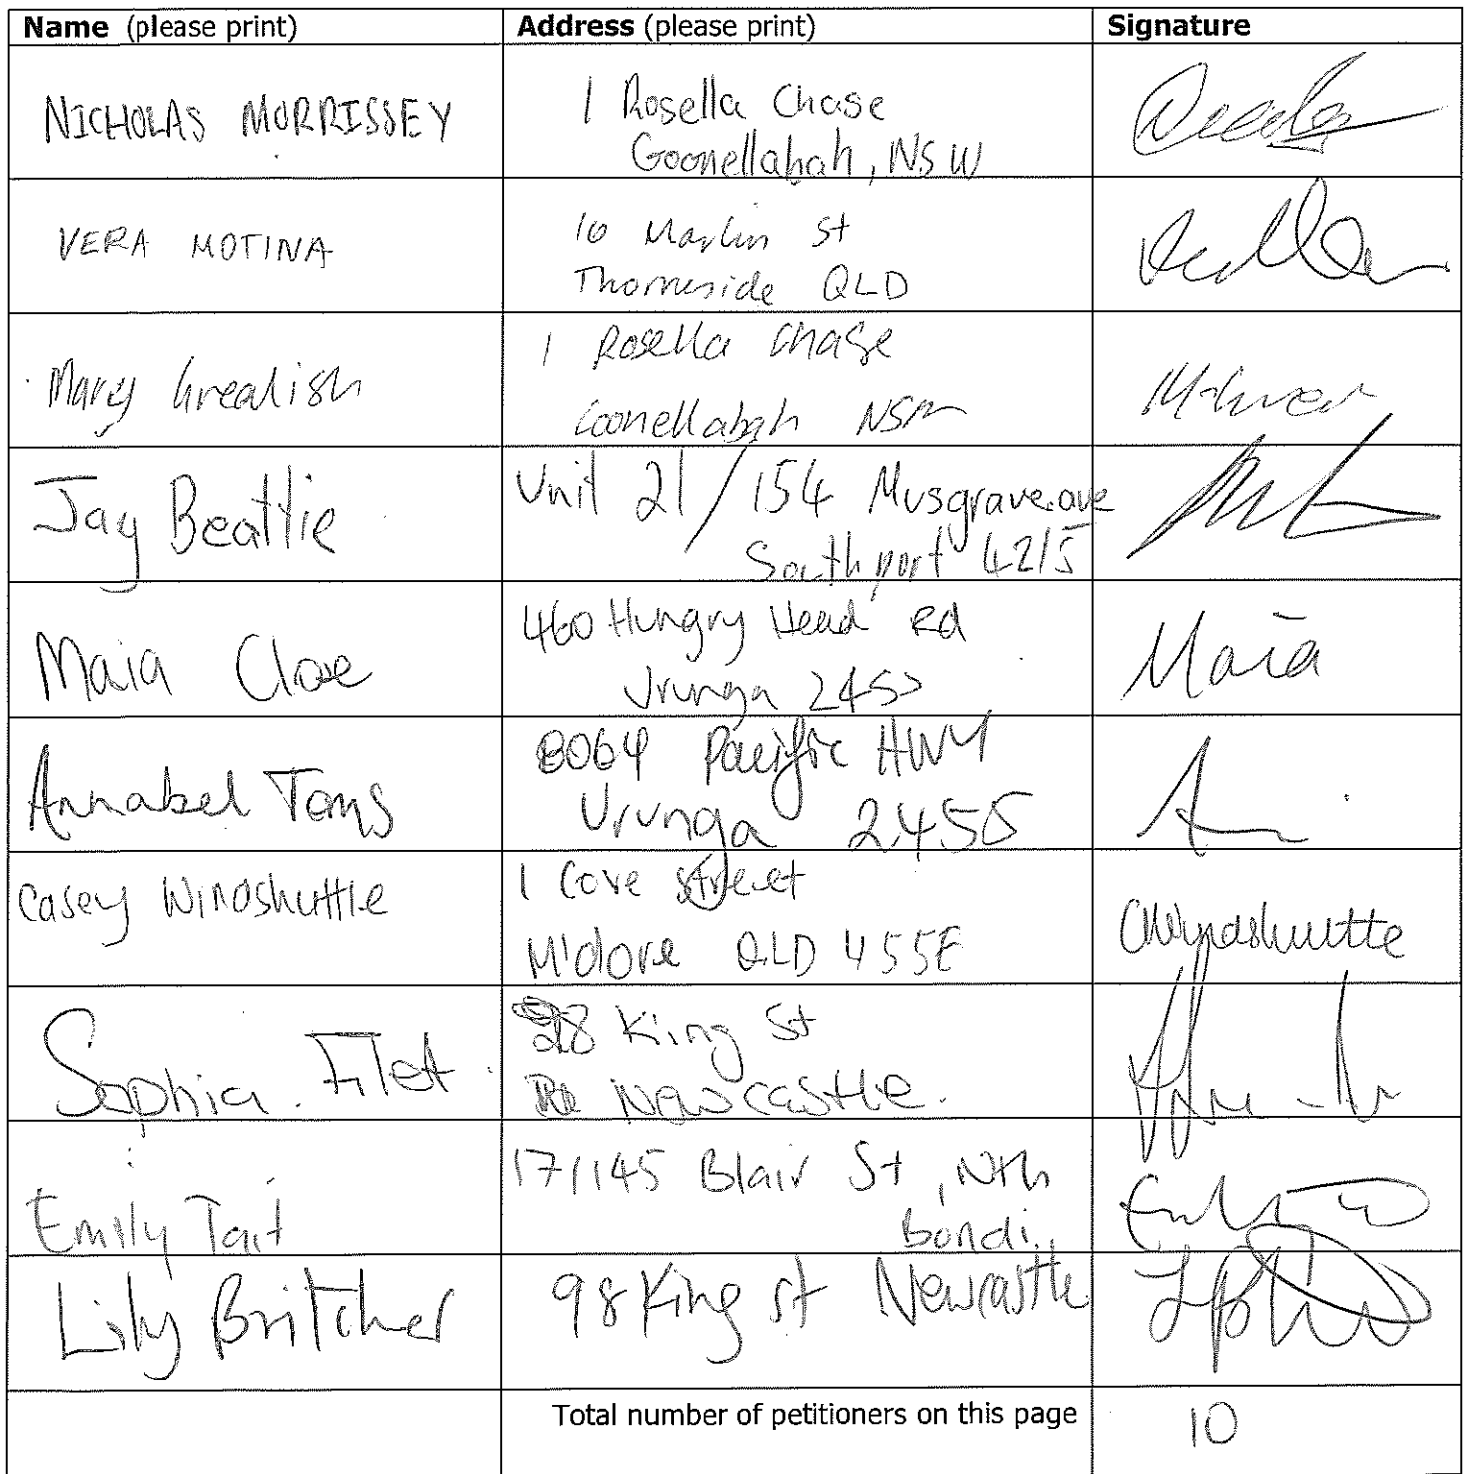 Name (please print) Address (please print) Signature
NICHOLAS MORRISSEY 1 Rosella Chase
Goonellabah, NSW
VERA MOTINA 10 Marlin St
Thorneside QLD
Mary Grealish 1 Rosella Chase
Goonellabah NSW
Jay Beattie Unit 21/154 Musgrave ave
Southport 4215
Maia Cloe 460 Hungry Head Rd Maia
Urunga 2455
Annabel Toms 8064 Pacific HWY
Urunga 2455
Casey Windshuttle 1 Cove street
QLD 455
Sophia. Filet 98 King St
Newcastle.
Emily Tait 17/145 Blair St, Nth
Bondi
Lily Britcher 98 King st Newcastle
Total number of petitioners on this page 10